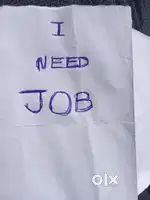 I
NEED
JOB
OLX